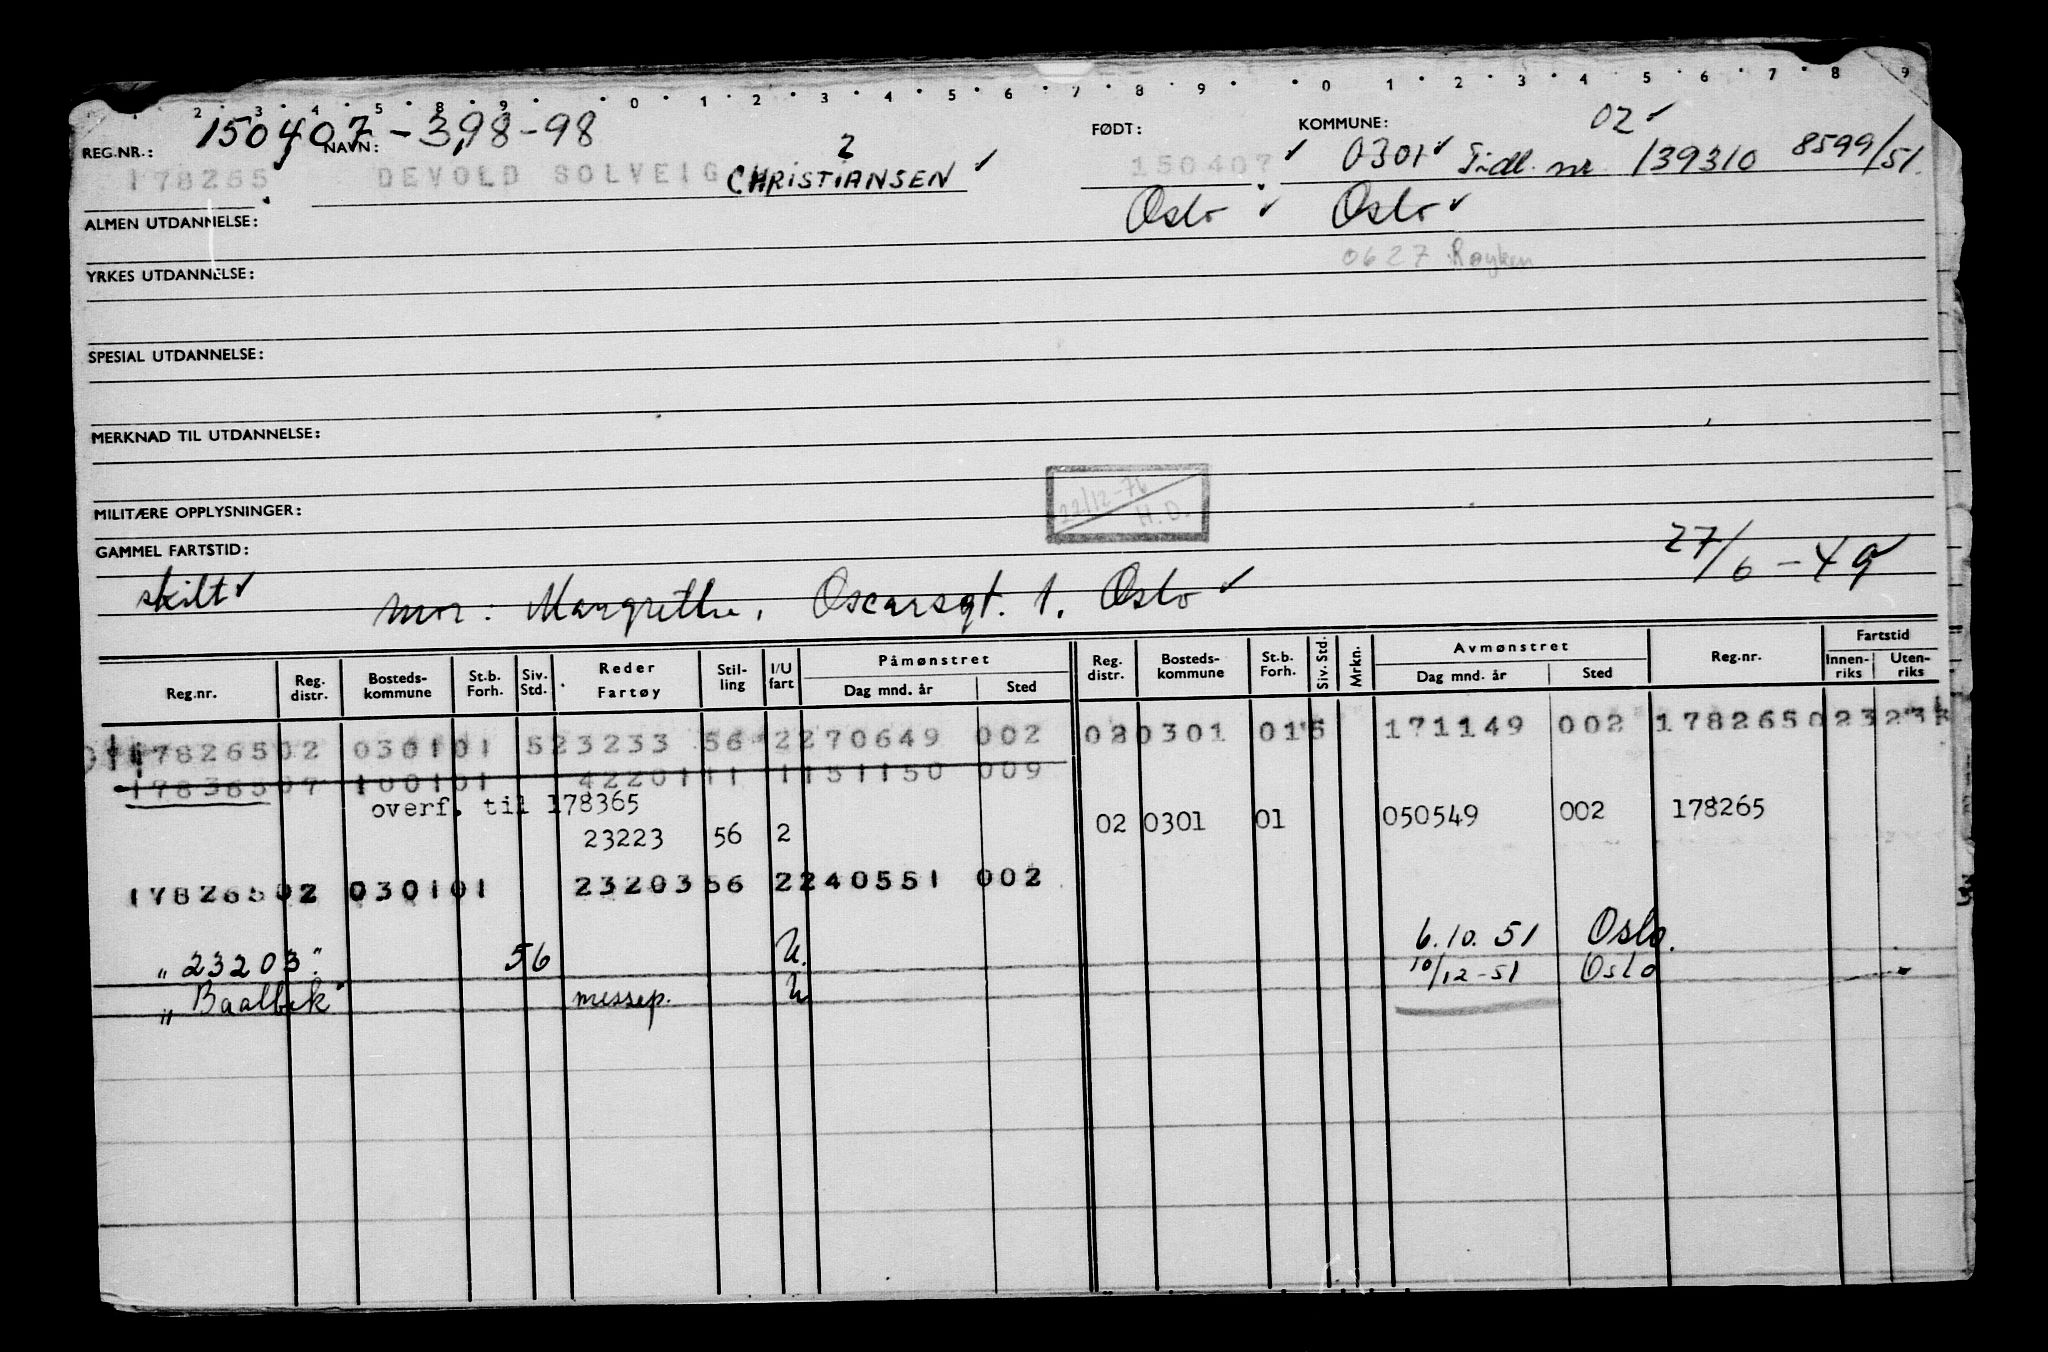 2 3 4 5 8 9 0 1 2 3 4 5 6 7 8 9 0 1 2 3 4 5 6 7 8 9
REG.NR.: 150407 - 3,98-98 NAVN: 2 FØDT: KOMMUNE: 02
178265 DEVOLD SOLVEIG CHRISTIANSEN 150407 0301 Tidl. nr. 139310 8599/51.
ALMEN UTDANNELSE: Oslo Oslo
YRKES UTDANNELSE: 0627 Røyken
SPESIAL UTDANNELSE:
MERKNAD TIL UTDANNELSE:
22/12-76
H.D.
MILITÆRE OPPLYSNINGER:
GAMMEL FARTSTID: 27/6-49
skilt mor: Margrethe, Oscarsgt. 1. Oslo
Reg.nr. Reg. distr. Bosteds-kommune St.b. Forh. Siv. Std. Reder Fartøy Stil-ling I/U fart Påmønstret Dag mnd. år Sted Reg. distr. Bosteds-kommune St.b. Forh. Siv. Std. Mrkn. Avmønstret Dag mnd. år Sted Reg.nr. Fartstid Innen-riks Uten-riks
178265 02 0301 01 5 23233 56 2 270649 002 02 0301 01 5 171149 002 178265 0 23233
178365 07 1001 01 42201 11 1 151150 009
overf. til 178365
23223 56 2 02 0301 01 050549 002 178265
178265 02 0301 01 23203 56 2 240551 002
"23203". 56 U. 6.10.51 Oslo.
"Baalbek" messep. U 10/12-51 Oslo